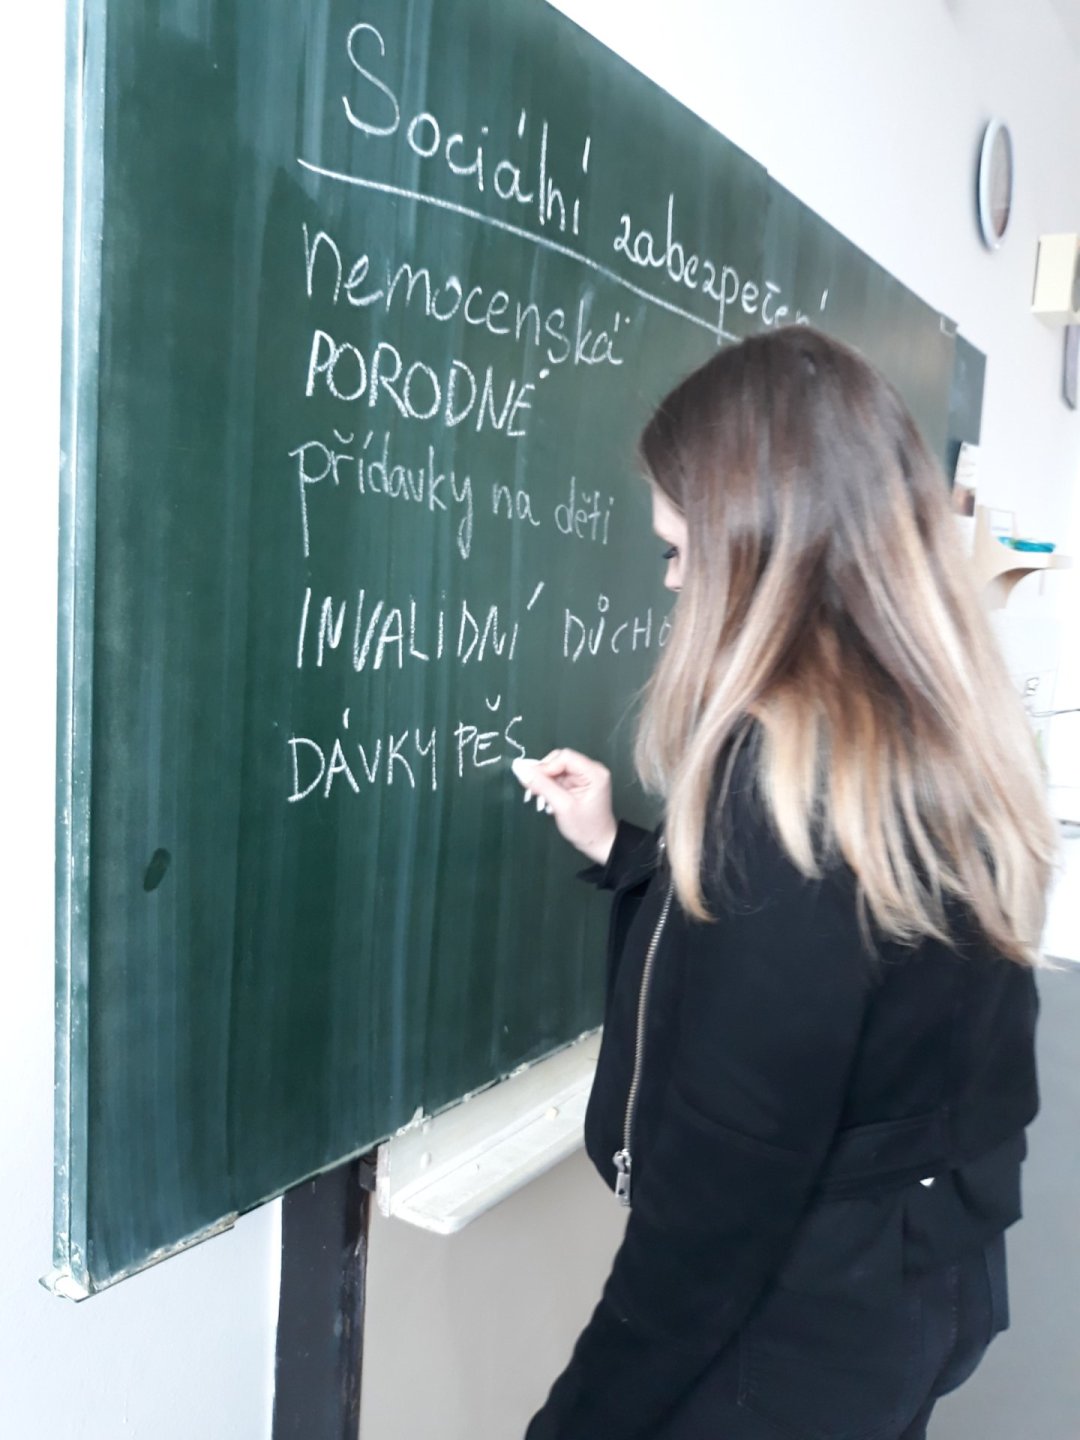 Sociální zabezpečení
nemocenská
PORODNÉ
přídavky na děti
INVALIDNÍ DŮCHO
DÁVKY PĚS